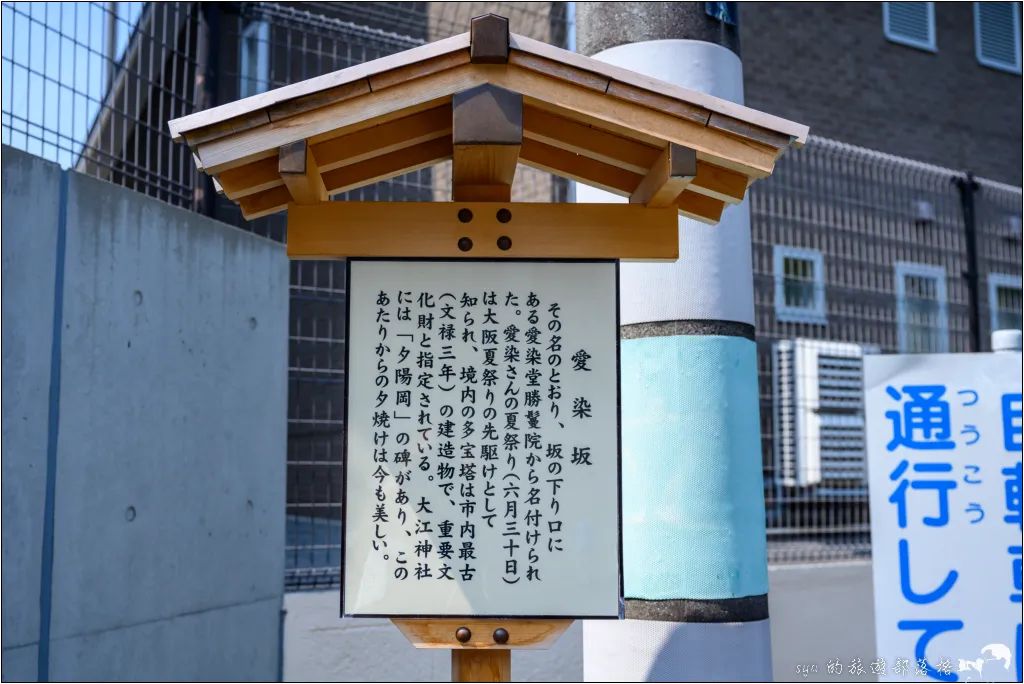 愛染坂
その名のとおり、坂の下り口に
ある愛染堂勝鬘院から名付けられ
た。愛染さんの夏祭り（六月三十日）
は大阪夏祭りの先駆けとして
知られ、境内の多宝塔は市内最古
（文禄三年）の建造物で、重要文
化財と指定されている。大江神社
には「夕陽岡」の碑があり、この
あたりからの夕焼けは今も美しい。
通行して
つうこう
sya 的旅遊部落格